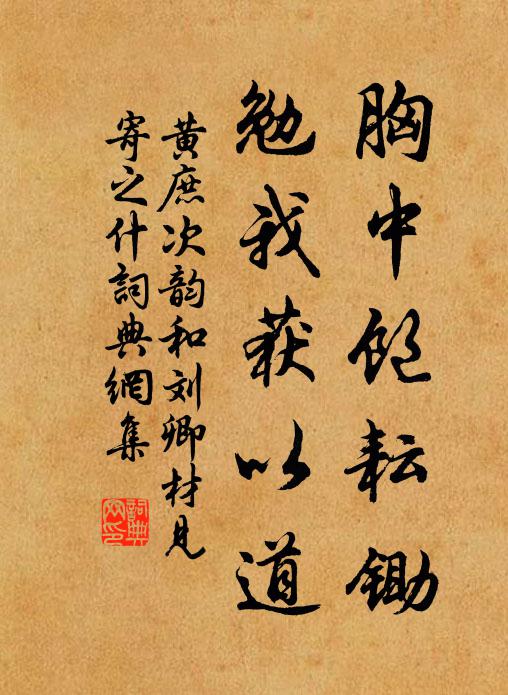 胸中饱耘锄
勉我获以道
黄庶次韵和刘卿材见
寄之什词典網集
詞典
网印